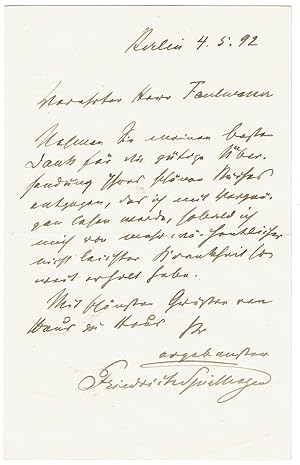 Berlin 4. 5. 92
Verehrter Herr Faulwasser
Nehmen Sie meinen besten
Dank für die gütige Über-
sendung Ihres schönen Buches
entgegen, das ich mit Vergnü-
gen lesen werde, sobald ich
mich von mehrwöchentlicher
nicht leichter Krankheit so
weit erholt habe.
Mit schönsten Grüßen von
Haus zu Haus
Ihr
ergebenster
Friedrich Spielhagen